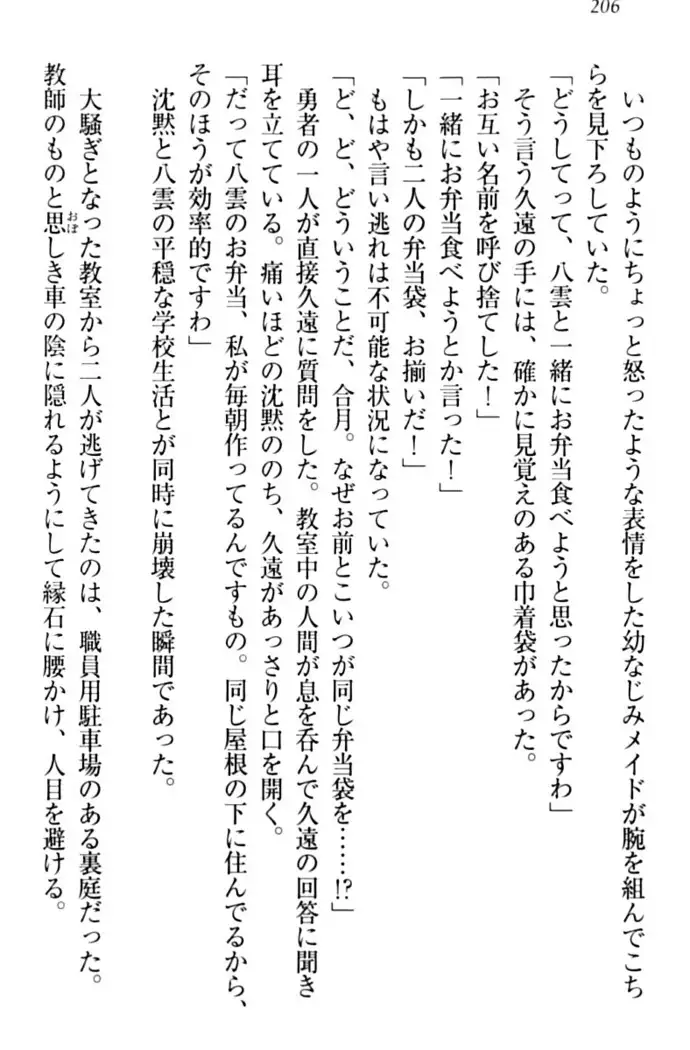 206
いつものようにちょっと怒ったような表情をした幼なじみメイドが腕を組んでこち
らを見下ろしていた。
「どうしてって、八雲と一緒にお弁当食べようと思ったからですわ」
そう言う久遠の手には、確かに見覚えのある巾着袋があった。
「お互い名前を呼び捨てした！」
「一緒にお弁当食べようとか言った！」
「しかも二人の弁当袋、お揃いだ！」
もはや言い逃れは不可能な状況になっていた。
「ど、ど、どういうことだ、合月。なぜお前とこいつが同じ弁当袋を……!?」
勇者の一人が直接久遠に質問をした。教室中の人間が息を呑んで久遠の回答に聞き
耳を立てている。痛いほどの沈黙ののち、久遠があっさりと口を開く。
「だって八雲のお弁当、私が毎朝作ってるんですもの。同じ屋根の下に住んでるから、
そのほうが効率的ですわ」
沈黙と八雲の平穏な学校生活とが同時に崩壊した瞬間であった。
大騒ぎとなった教室から二人が逃げてきたのは、職員用駐車場のある裏庭だった。
教師のものと思おぼしき車の陰に隠れるようにして縁石に腰かけ、人目を避ける。